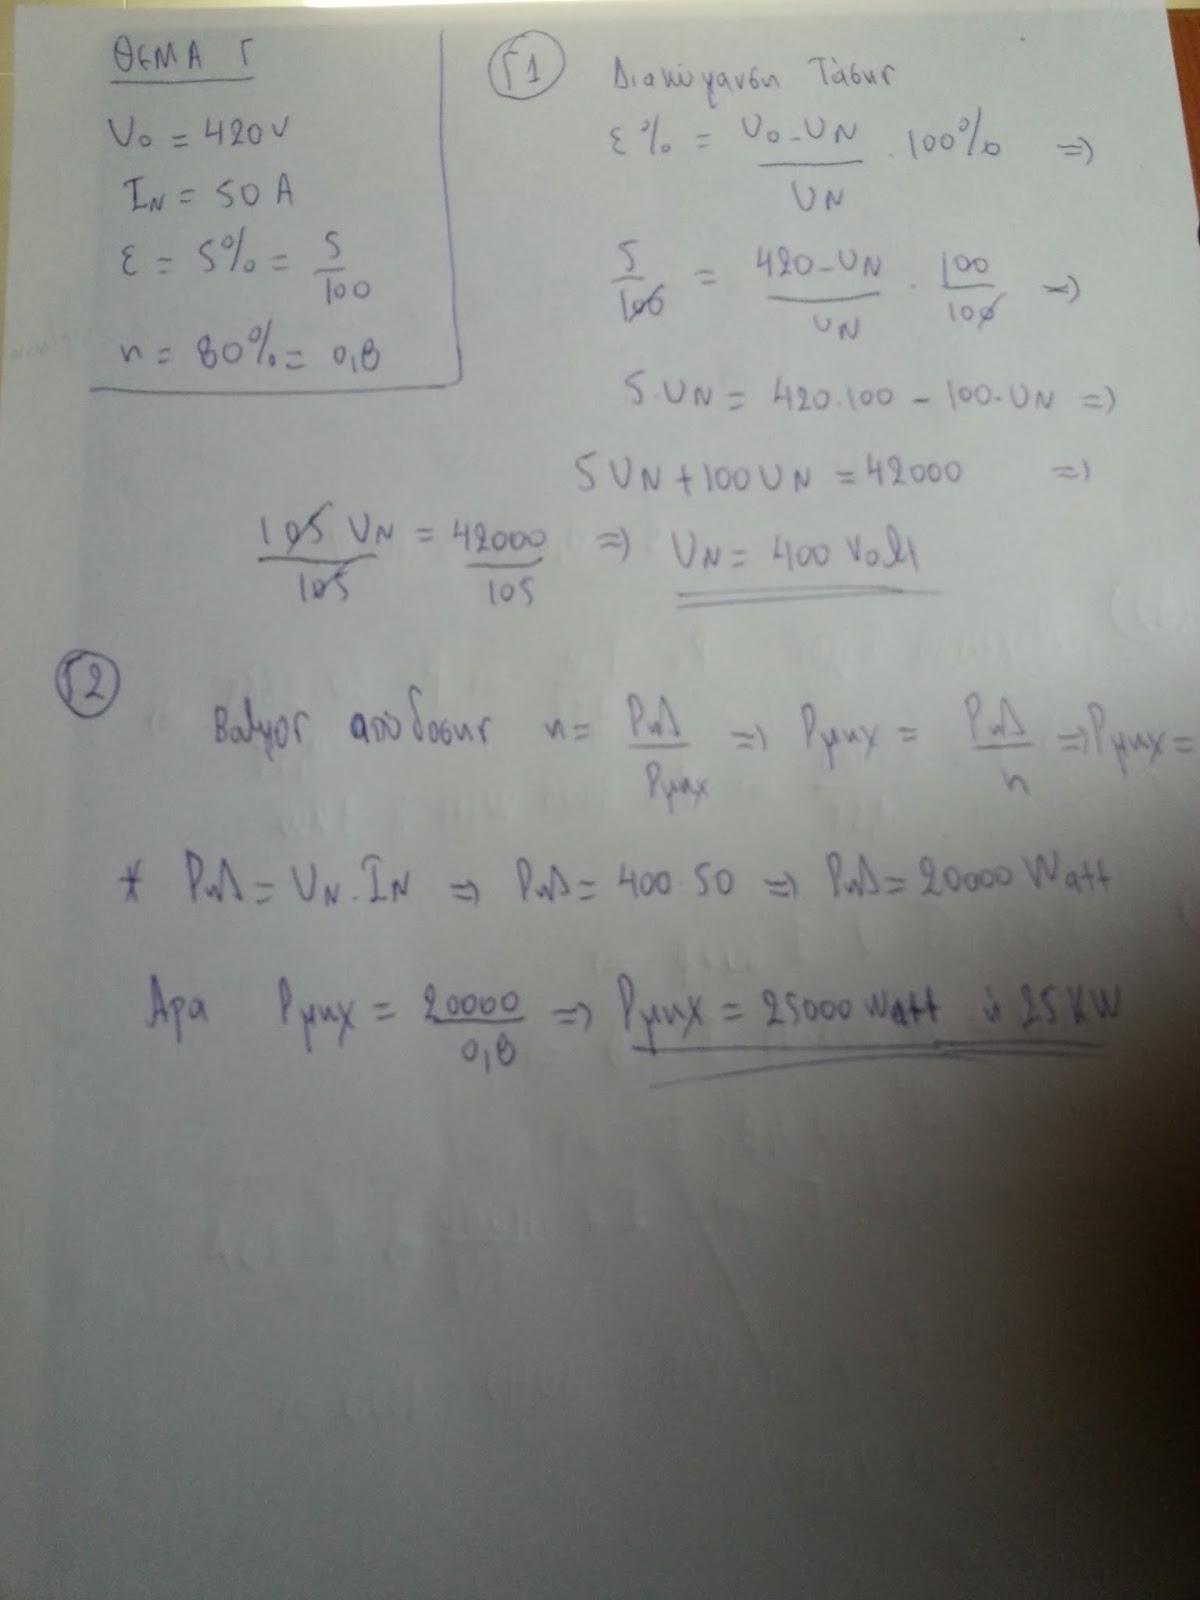 ΘΕΜΑ Γ
U₀ = 420V
I_N = 50 A
ε = 5% = 5/100
n = 80% = 0,8
Γ1 Διακύμανση Τάσης
ε% = (U₀ - U_N)/U_N . 100% =>
5/100 = (420 - U_N)/U_N . 100/100 =>
5.U_N = 420.100 - 100.U_N =>
5 U_N + 100 U_N = 42000 =>
105 U_N/105 = 42000/105 => U_N = 400 Volt
Γ2
Βαθμος απόδοσης n = PηΔ/Pμηχ => Pμηχ = PηΔ/n => Pμηχ =
* PηΔ = U_N . I_N => PηΔ = 400.50 => PηΔ = 20000 Watt
Αρα Pμηχ = 20000/0,8 => Pμηχ = 25000 Watt ή 25 KW